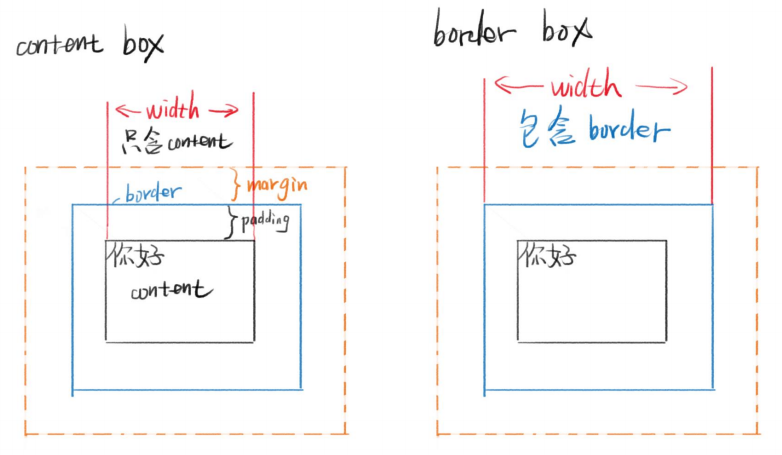 content box
width
只含content
margin
border
padding
你好
content
border box
width
包含border
你好